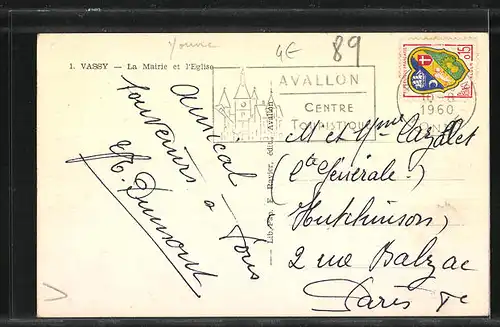 Yonne
4E
89
1. VASSY - La Mairie et l'Eglise
AVALLON
CENTRE
TOURISTIQUE
0,05
1960
Lib. Pap. E. Ravier, édit. Avallon
Amical
souvenirs à
tous
Dumont
M et Mme Cazalet
(Cte Générale-
Hutchinson)
2 rue Balzac
Paris